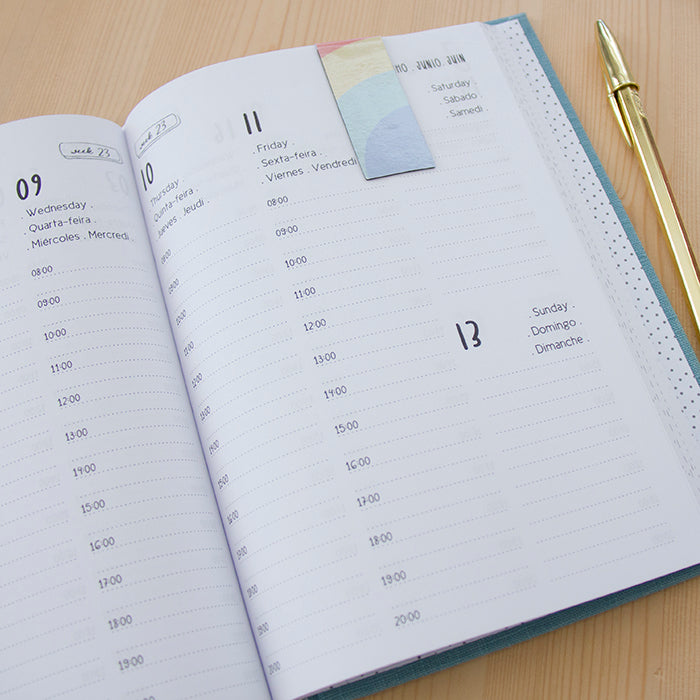 week 23
09
Wednesday .
Quarta-feira .
Miércoles . Mercredi .
08:00
09:00
10:00
11:00
12:00
13:00
14:00
15:00
16:00
17:00
18:00
19:00
week 23
10
Thursday .
Quinta-feira .
Jueves . Jeudi .
08:00
09:00
10:00
11:00
12:00
13:00
14:00
15:00
16:00
17:00
18:00
19:00
20:00
11
. Friday .
. Sexta-feira .
. Viernes . Vendredi
08:00
09:00
10:00
11:00
12:00
13:00
14:00
15:00
16:00
17:00
18:00
19:00
20:00
. JUNIO . JUIN
Saturday .
Sábado .
Samedi .
13
. Sunday .
. Domingo .
. Dimanche .